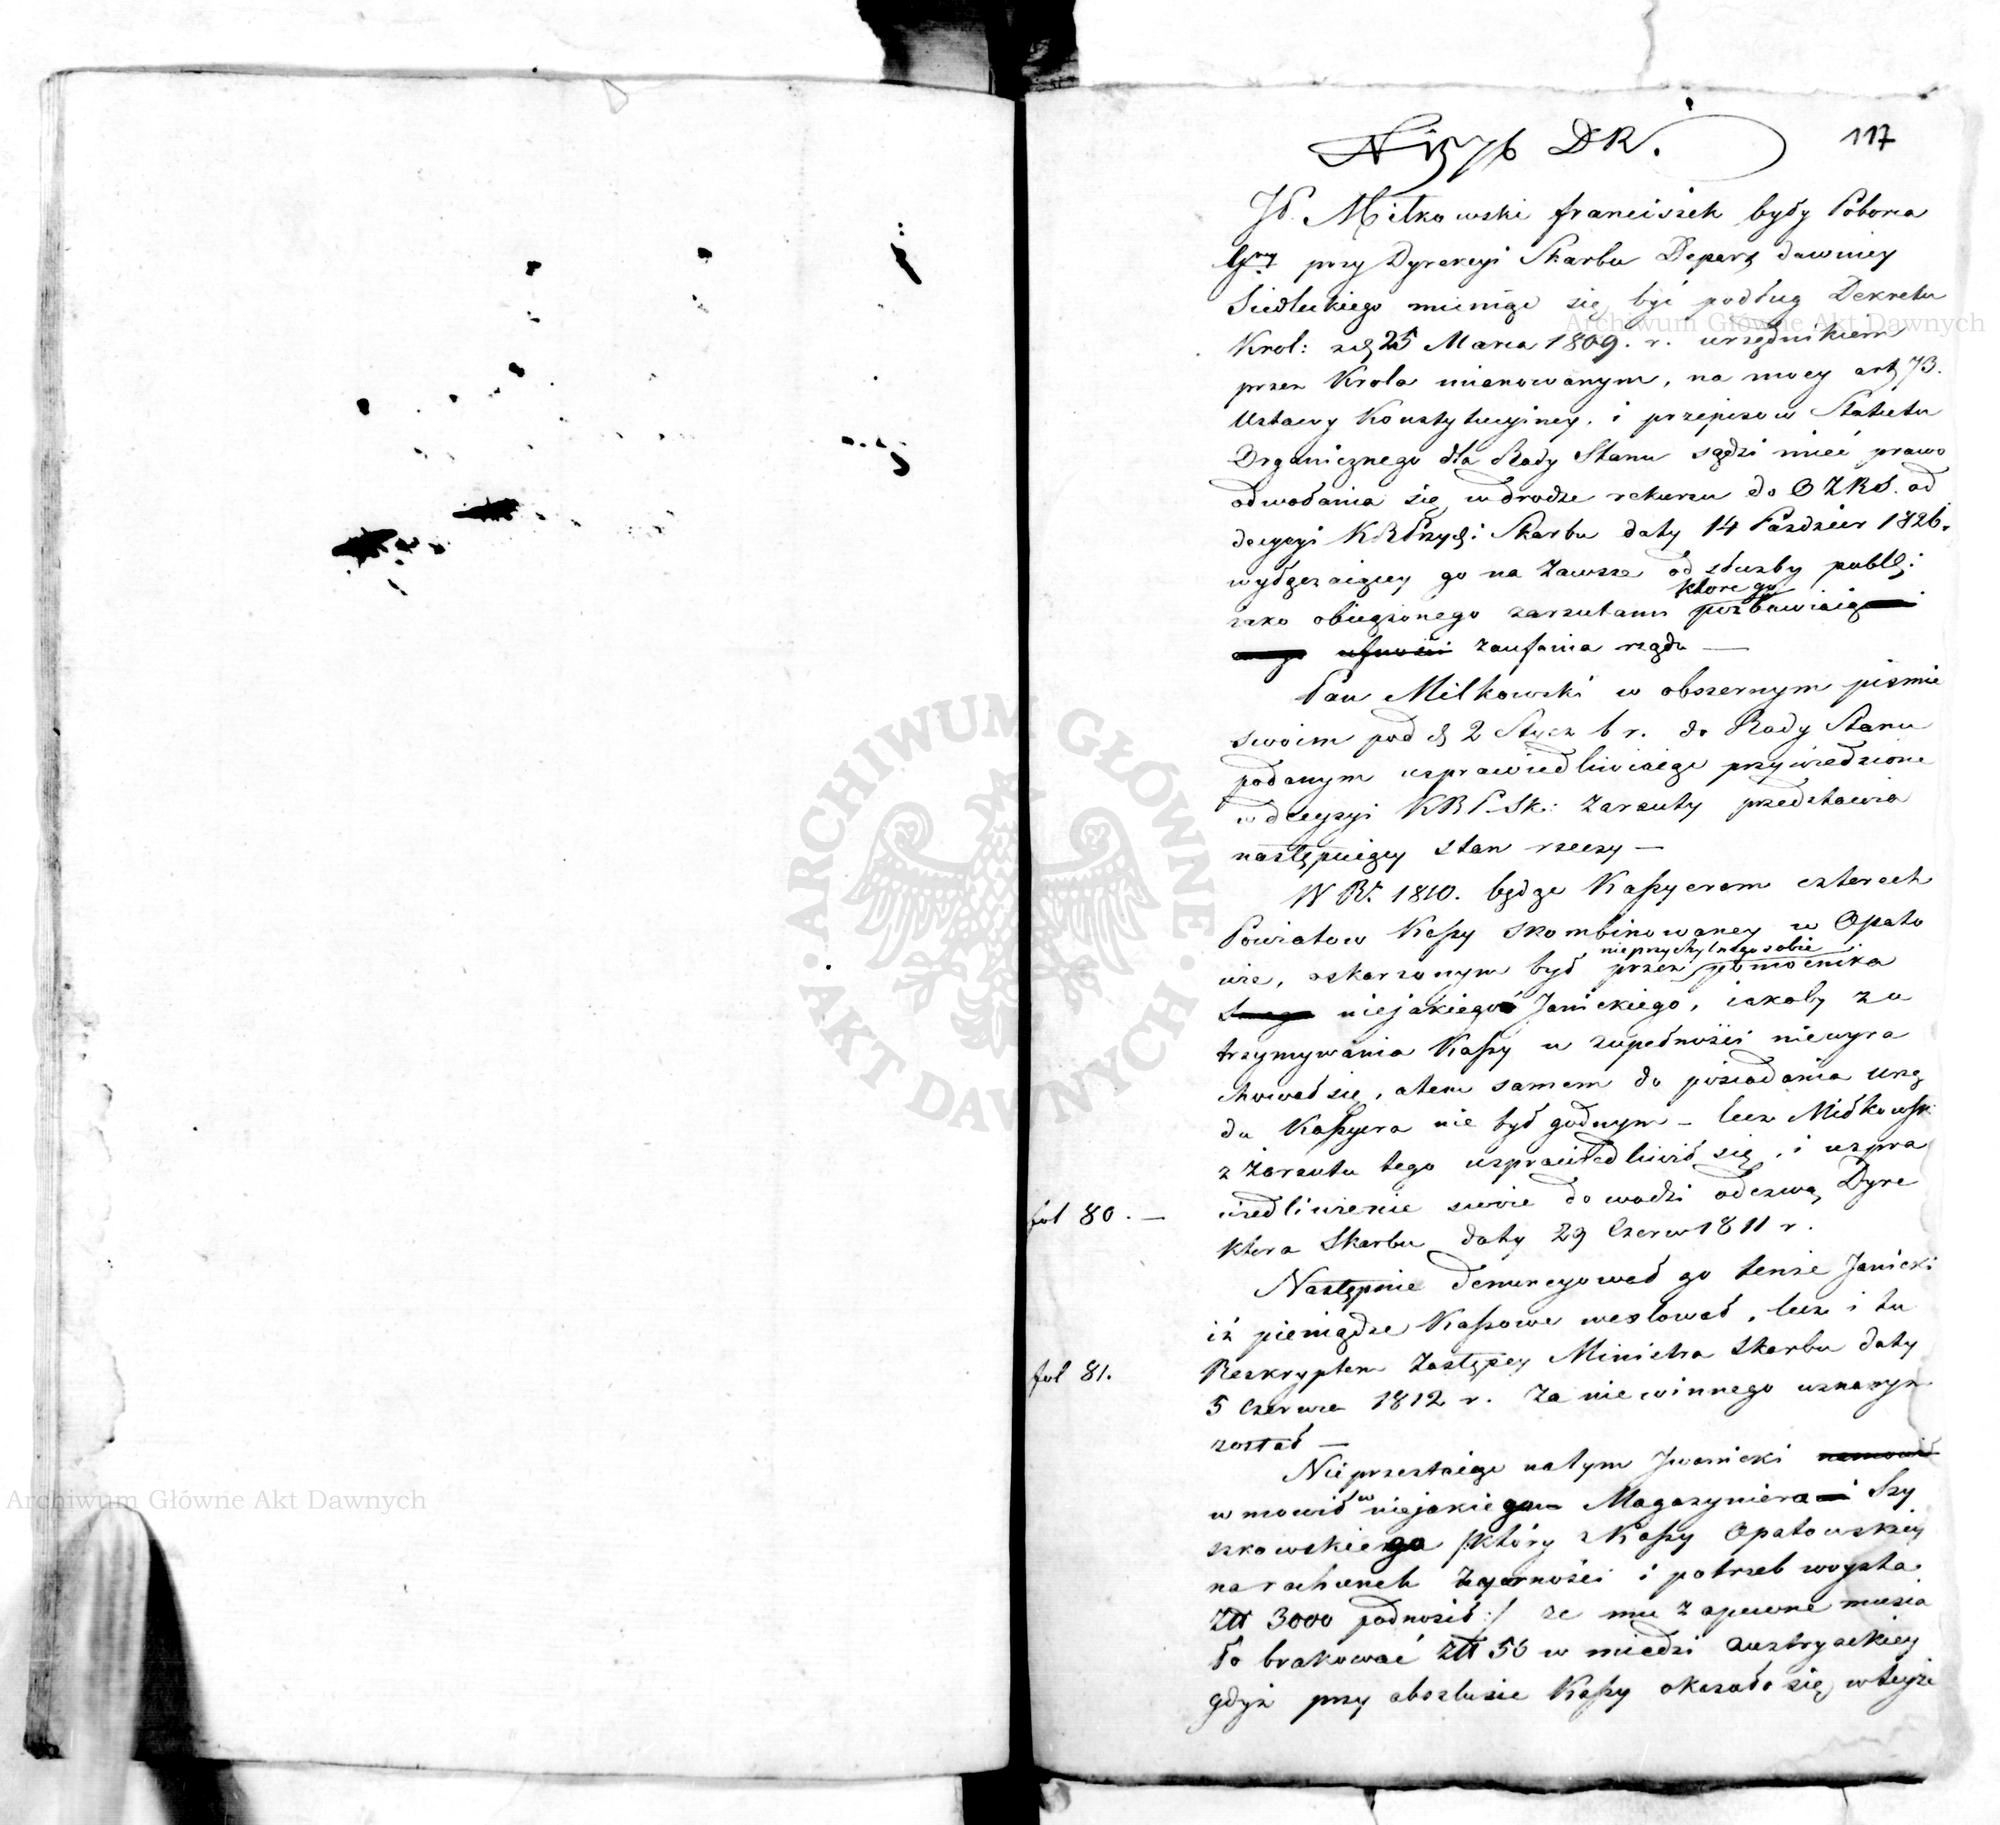 117
N 1576 DR.
JP. Miłkowski franciszek były Poborca
Gny przy Dyrekcyi Skarbu Depart dawniey
Siedleckiego mieniąc się być podług Dekretu
Krol: z d 25 Marca 1809. r. urzędnikiem
przez Krola mianowanym, na mocy art 73.
Ustawy Konstytucyiney, i przepisow Statutu
Organicznego dla Rady Stanu sądzi mieć prawo
odwołania się w drodze rekursu do OZRS. od
decyzyi KRPrzych: i Skarbu daty 14 Pazdzier 1826.
wyłączaiącey go na zawsze od służby publ:
ktore go
iako obiezionego zarzutami pozbawiaią
ufności zaufania rządu —
Pan Miłkowski w obszernym piśmie
swoim pod d 2 Stycz b r. do Rady Stanu
podanym usprawiedliwiaiąc przywiedzione
w decyzyi KRPSk: zarzuty przedstawia
następuiący stan rzeczy —
W Rr. 1810. będąc Kassyerem czterech
Powiatow Kassy skombinowaney w Opato
nieprzychylnego sobie
wie, oskarżonym był przez pomocnika
niejakiego Janickiego, iakoby z u
trzymywania Kassy w zupełności niewyra
chował się, a tem samem do posiadania urzę
du Kassyera nie był godnym – lecz Miłkowski
z zarzutu tego usprawiedliwił się, i uspra
fol 80. —
wiedliwienie swoie dowodzi odezwą Dyre
ktora Skarbu daty 29 Czerw 1811 r.
Następnie denuncyował go tenże Janicki
iż pieniądze Kassowe wexlował, lecz i tu
fol 81.
Reskryptem Zastępcy Ministra Skarbu daty
5 Czerwca 1812 r. za niewinnego uznanym
został —
Nieprzestaiąc na tym Iwanicki namowił
wmowił w niejakiego Magazyniera Szy
szkowskiego /:który z Kassy Opatowskiey
na rachunek żywności i potrzeb woyska
Złł 3000 podnosił:/ że mu zapewne musia
ło brakować złł 50 w miedzi austryackiey
gdyż przy obszlusie Kassy okazało się w teyże
ARCHIWUM GŁÓWNE · AKT DAWNYCH ·
Archiwum Główne Akt Dawnych
Archiwum Główne Akt Dawnych